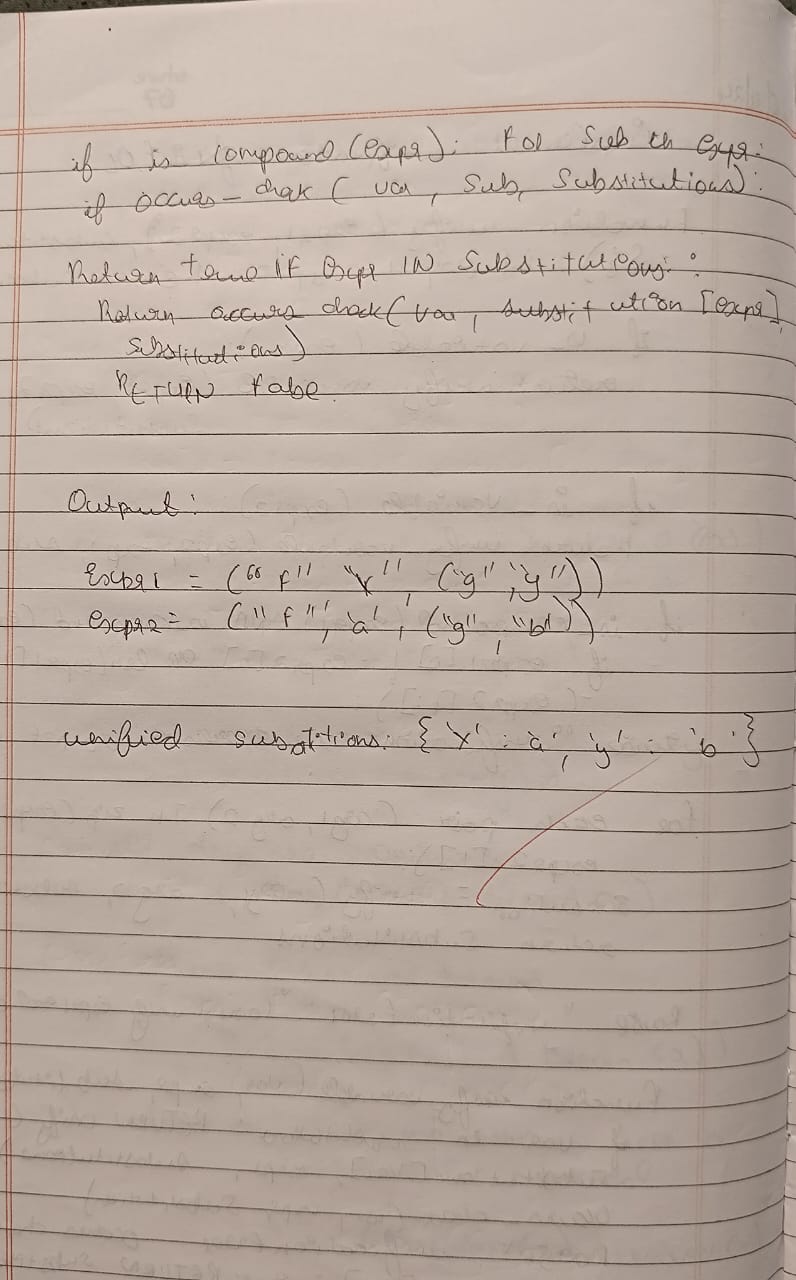 if is compound (expr): For sub in expr:
if occurs-chak ( var, sub, Substitutions):
Return true if Expr IN Substitutions:
Return occurs chak( var, substitution [expr],
Substitutions)
RETURN false.
Output:
Expr1 = ("f" "x", ("g", 'y"))
expr2 = ("f", 'a', ("g", "b"))
unified substitions: { 'x' : 'a', 'y' : 'b' }